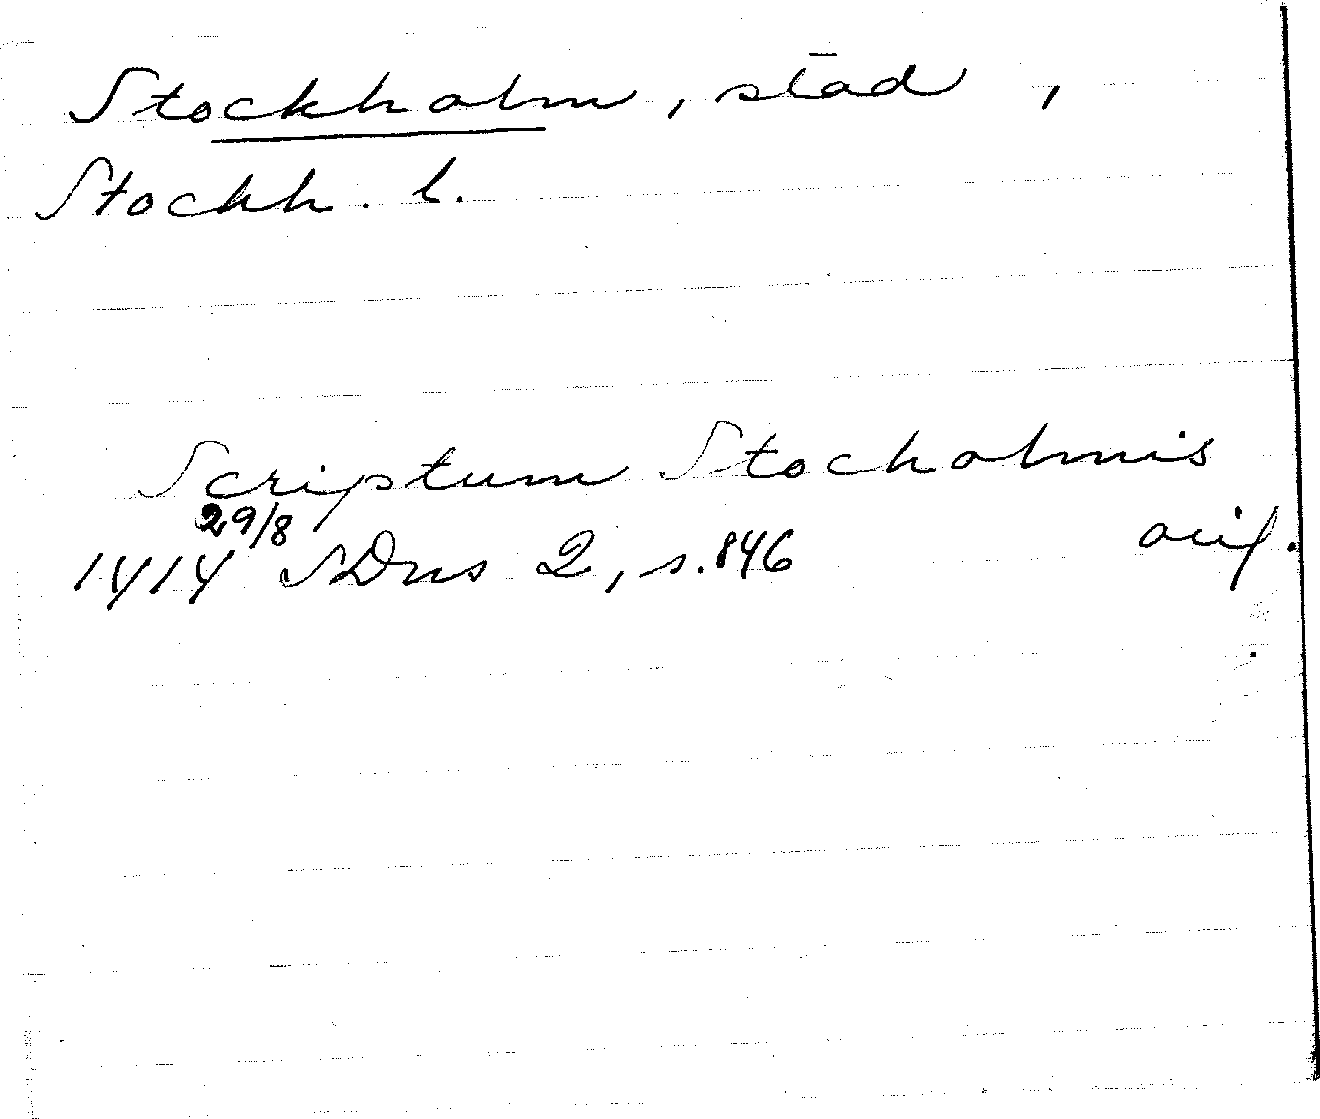 Stockholm, stad,
Stockh. l.
Scriptum Stocholmis
1414 29/8 SDns 2, s. 846 orig.